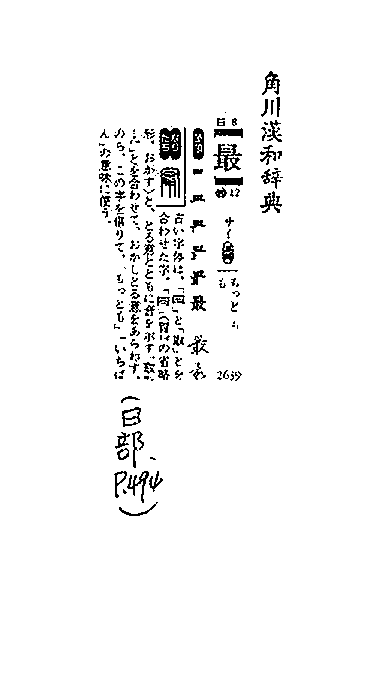 角川漢和辞典
日 8
最
12
サイ
もっとも
2659
最
古い字体は、「冃」と「取」とを
合わせた字。「冃」(冒)の省略
形。おかす)と、とる意とともに音を示す、「取
」とを合わせて、おかしとる意をあらわす。
のち、この字を借りて、「もっとも」「いちば
ん」の意味に使う。
(日部、
P.494)